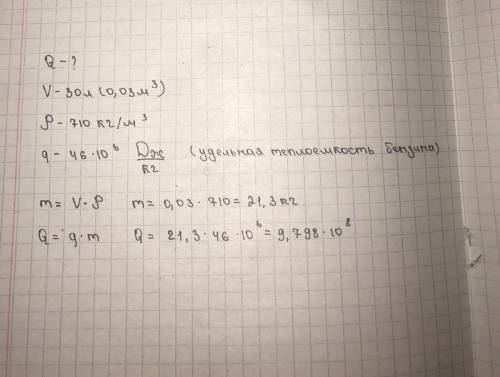 Q - ?
V - 30л (0,03м³)
ρ - 710 кг/м³
q - 46·10⁶ Дж/кг (удельная теплоешкость бензина)
m = V·ρ m = 0,03·710 = 21,3 кг
Q = q·m Q = 21,3·46·10⁶ = 9,798·10⁸